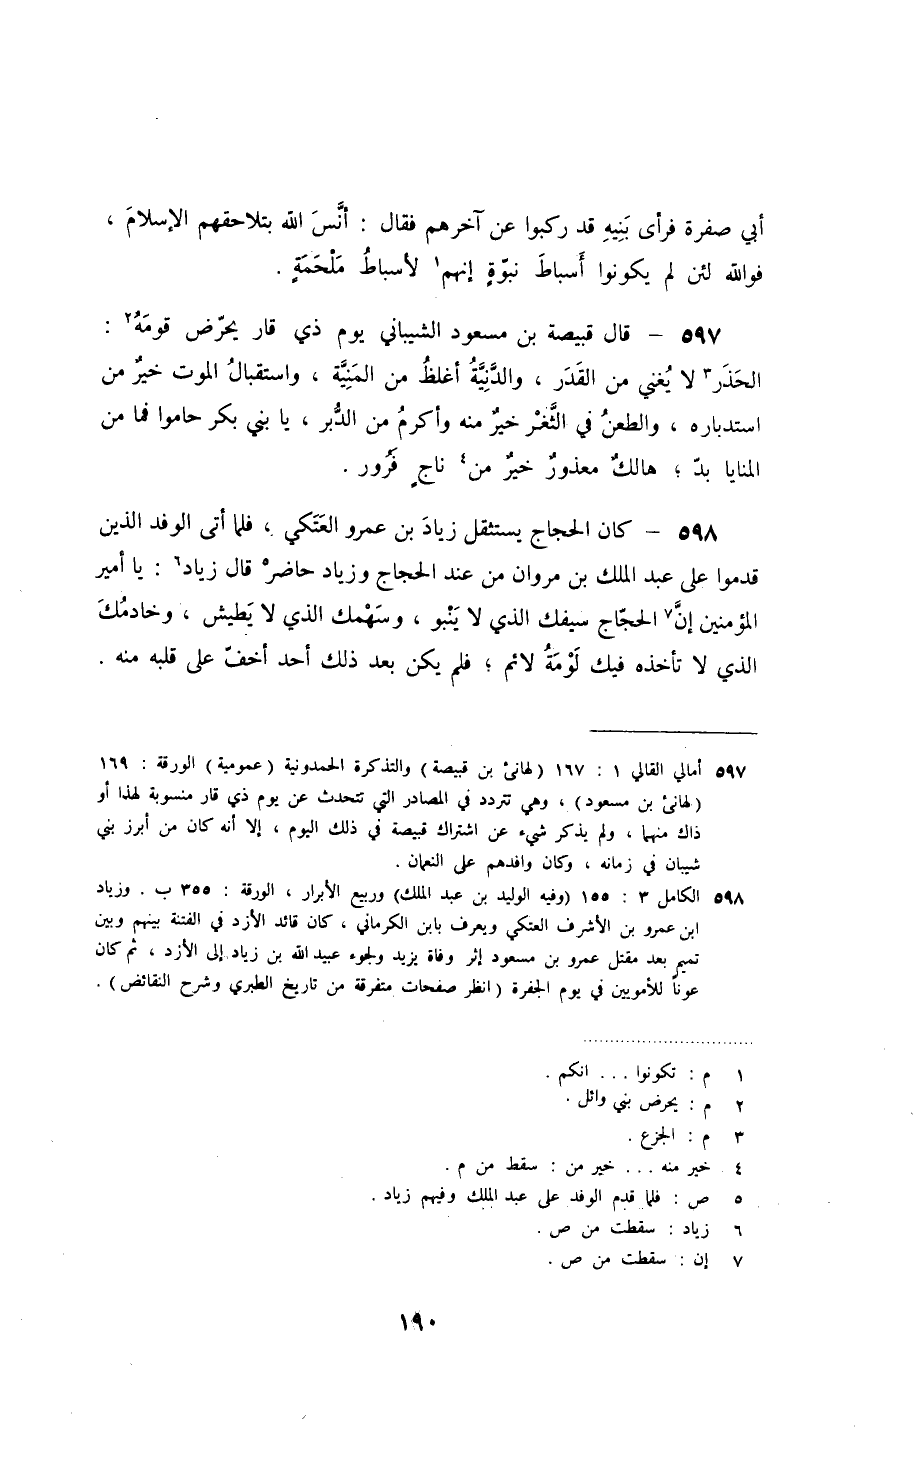 أبي صفرة فرأى بَنِيهِ قد ركبوا عن آخرهم فقال : أنَّسَ الله بتلاحقهم الإسلامَ ،
فوالله لئن لم يكونوا أَسباطَ نبوّةٍ إنهم١ لأسباطُ مَلْحَمَةٍ .
٥٩٧ – قال قبيصة بن مسعود الشيباني يوم ذي قار يحرّض قومَهُ٢ :
الحَذَر٣ لا يُغني من القَدَر ، والدَّنِيَّةُ أغلظُ من المَنِيَّة ، واستقبالُ الموت خيرٌ من
استدباره ، والطعنُ في الثَّغْر خيرٌ منه وأكرمُ من الدُّبر ، يا بني بكر حاموا فما من
المنايا بدّ ؛ هالكٌ معذورٌ خيرٌ من٤ ناجٍ فَرُور .
٥٩٨ – كان الحجاج يستثقل زيادَ بن عمرو العَتَكي ، فلما أتى الوفد الذين
قدموا على عبد الملك بن مروان من عند الحجاج وزياد حاضر٥ قال زياد٦ : يا أمير
المؤمنين إنَّ٧ الحجّاج سيفك الذي لا يَنْبو ، وسَهْمك الذي لا يَطيش ، وخادمُكَ
الذي لا تأخذه فيك لَوْمَةُ لائم ؛ فلم يكن بعد ذلك أحد أخفّ على قلبه منه .
٥٩٧ أمالي القالي ١ : ١٦٧ (لهانئ بن قبيصة) والتذكرة الحمدونية (عمومية) الورقة : ١٦٩
(لهانئ بن مسعود) ، وهي تتردد في المصادر التي تتحدث عن يوم ذي قار منسوبة لهذا أو
ذاك منهما ، ولم يذكر شيء عن اشتراك قبيصة في ذلك اليوم ، إلا أنه كان من أبرز بني
شيبان في زمانه ، وكان وافدهم على النعمان .
٥٩٨ الكامل ٣ : ١٥٥ (وفيه الوليد بن عبد الملك) وربيع الأبرار ، الورقة : ٣٥٥ ب . وزياد
ابن عمرو بن الأشرف العتكي ويعرف بابن الكرماني ، كان قائد الأزد في الفتنة بينهم وبين
تميم بعد مقتل عمرو بن مسعود إثر وفاة يزيد ولجوء عبيد الله بن زياد إلى الأزد ، ثم كان
عوناً للأمويين في يوم الجفرة (انظر صفحات متفرقة من تاريخ الطبري وشرح النقائض) .
١ م : تكونوا ... انكم .
٢ م : يحرض بني وائل .
٣ م : الجزع .
٤ خير منه ... خير من : سقط من م .
٥ ص : فلما قدم الوفد على عبد الملك وفيهم زياد .
٦ زياد : سقطت من ص .
٧ إن : سقطت من ص .
١٩٠